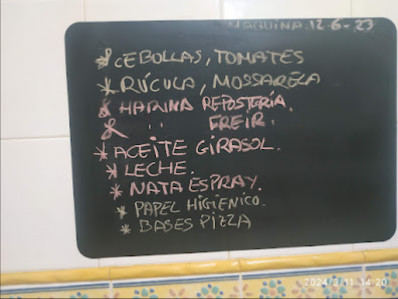 MAQUINA.12-6-23
* CEBOLLAS, TOMATES
* RÚCULA, MOSSARELA
* HARINA REPOSTERÍA.
* " FREIR.
* ACEITE GIRASOL.
* LECHE.
* NATA ESPRAY.
* PAPEL HIGIÉNICO.
* BASES PIZZA
2024/3/11 14:20